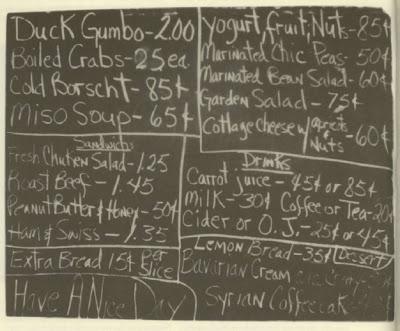 Duck Gumbo-2.00
Boiled Crabs-25ea.
Cold Borscht-85¢
Miso Soup-65¢
Yogurt, Fruit, Nuts-85¢
Marinated Chic Peas-50¢
Marinated Bean Salad-60¢
Garden Salad-75¢
Cottage Cheese w/ Nuts-60¢
Sandwichs
Fresh Chicken Salad-1.25
Roast Beef-1.45
Peanut Butter & Honey-50¢
Ham & Swiss-1.35
Extra Bread 15¢ Per Slice
Drinks
Carrot Juice-45¢ or 85¢
Milk-30¢ Coffee or Tea-20¢
Cider or O.J.-25¢ or 45¢
Lemon Bread-35¢ Dessert
Bavarian Cream
Syrian Coffeecak
Have A Nice Day